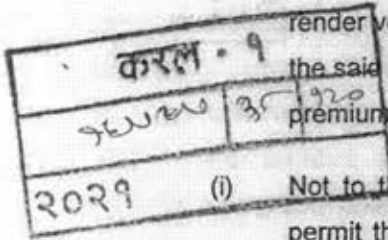 render
करल - १
the said
३८ १२०
premium
२०२१ (i) Not to
permit